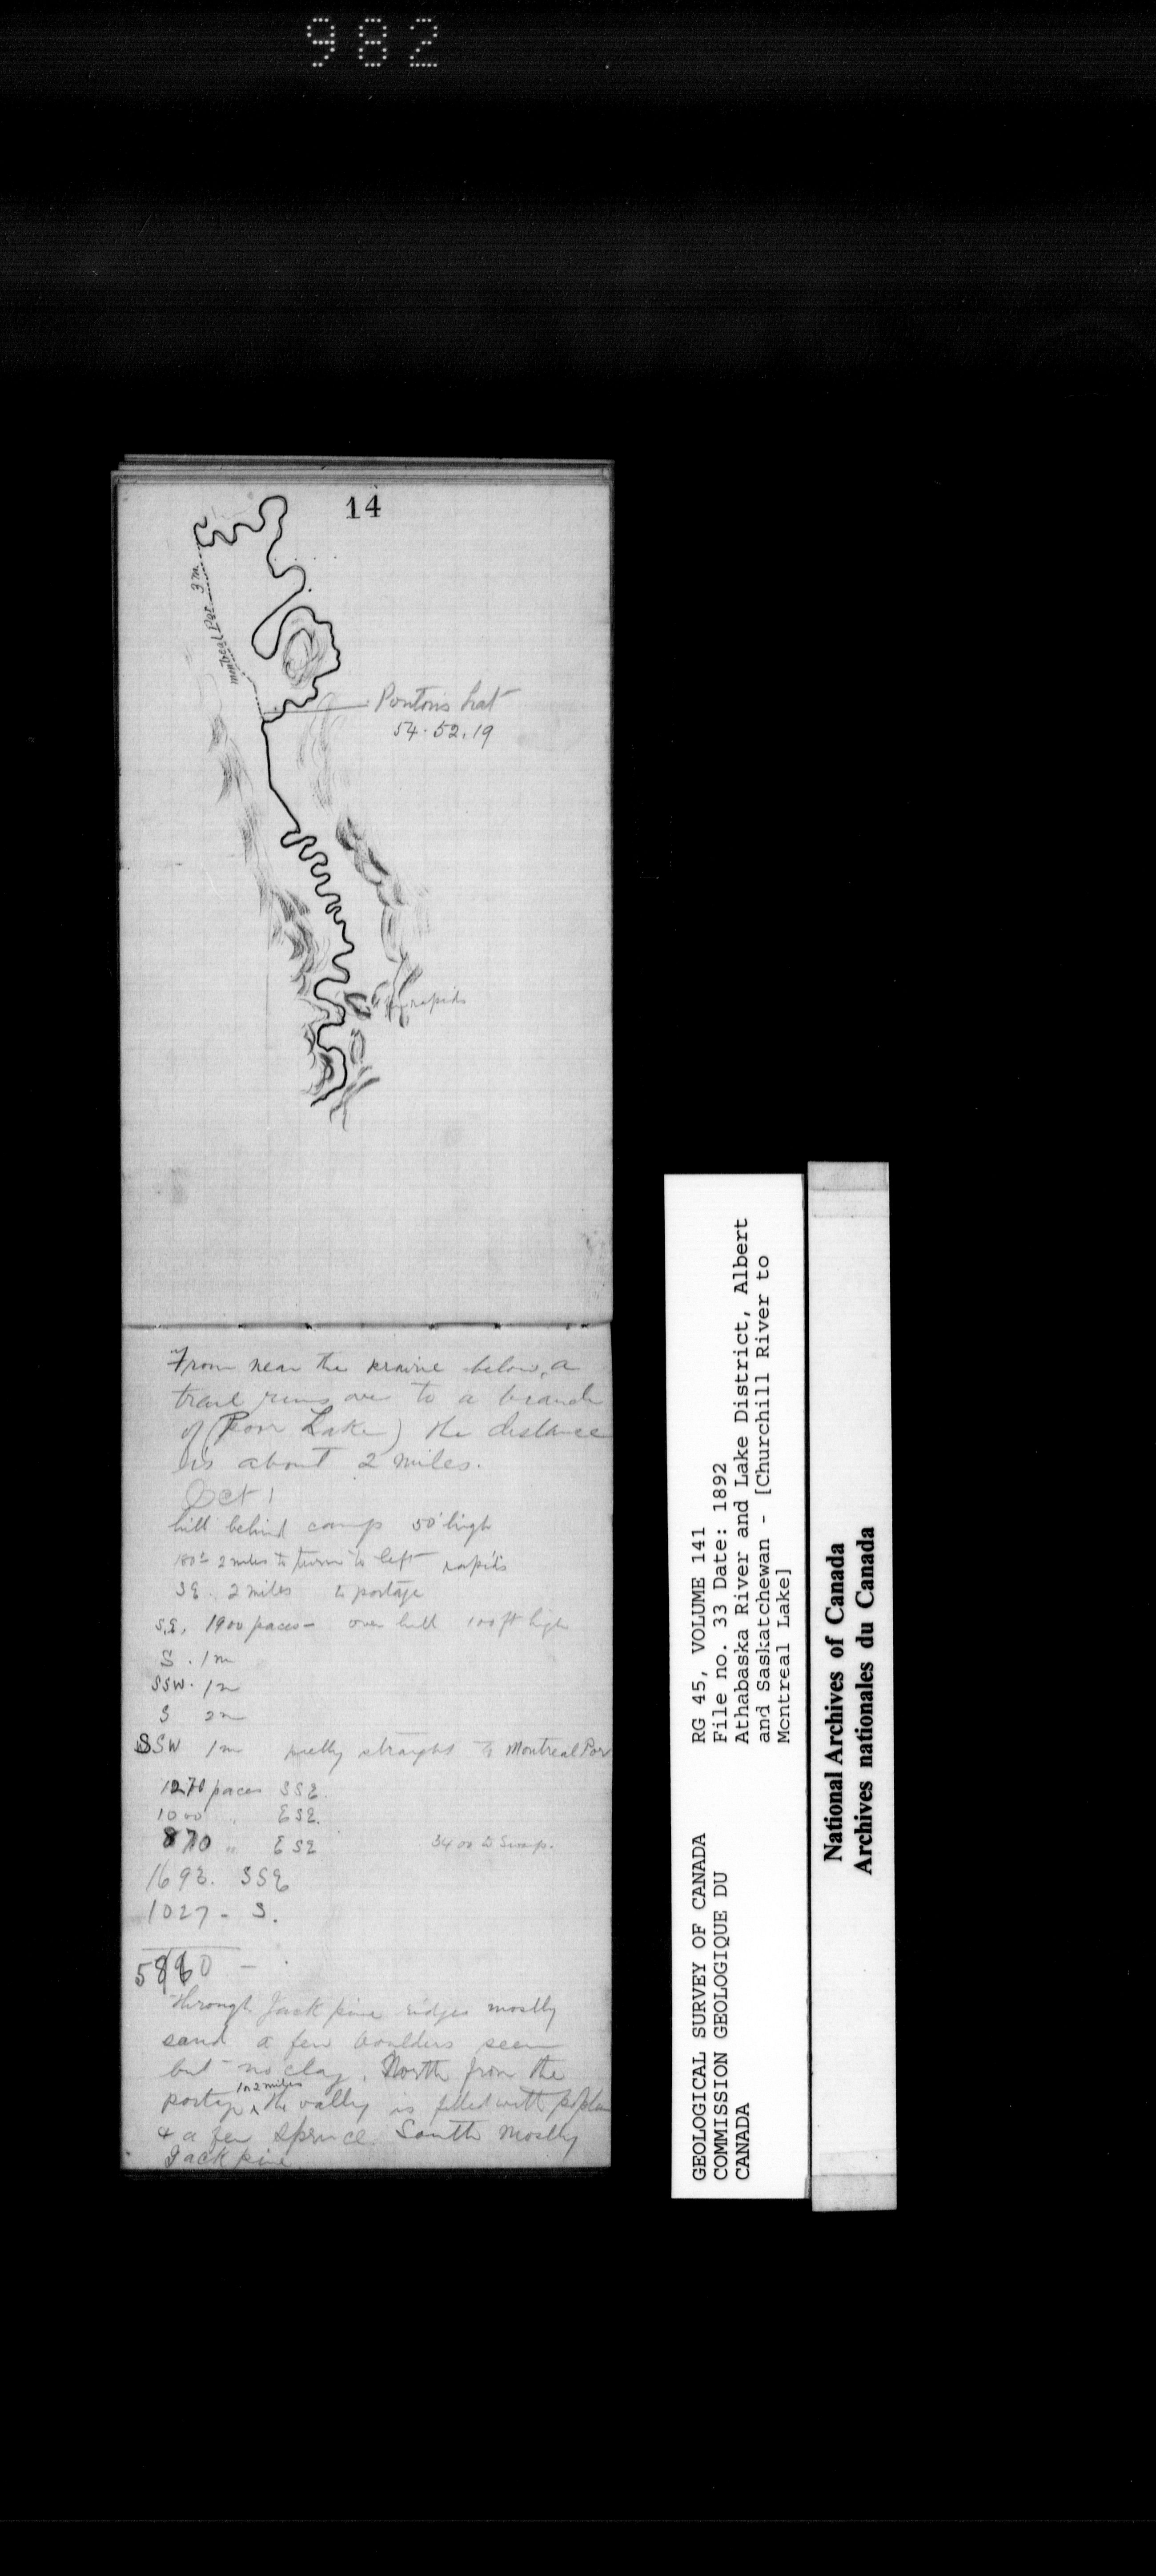 982
14
Montreal Por. 3 m.
Ponton's Lat
54.52.19
rapids
From near the prairie below, a
trail runs over to a branch
of (Poor Lake) the distance
is about 2 miles.
Oct 1
hill behind camp 50' high
2 miles to turn to left rapids
SE. 2 miles to portage
S.E. 1900 paces - over hill 100 ft high
S. 1m
SSW. 1m
S 2m
SSW 1m pretty straight to Montreal Por
1270 paces SSE.
1000 " ESE.
870 " ESE 3400 to Swap.
1692. SSE
1027 - S.
5860 -
Through Jack pine ridges mostly
sand a few boulders seen
but no clay. North from the
portage 1 or 2 miles the valley is filled with poplar
& a few spruce South mostly
Jack pine
GEOLOGICAL SURVEY OF CANADA
COMMISSION GEOLOGIQUE DU
CANADA
RG 45, VOLUME 141
File no. 33 Date: 1892
Athabaska River and Lake District, Albert
and Saskatchewan - [Churchill River to
Montreal Lake]
National Archives of Canada
Archives nationales du Canada